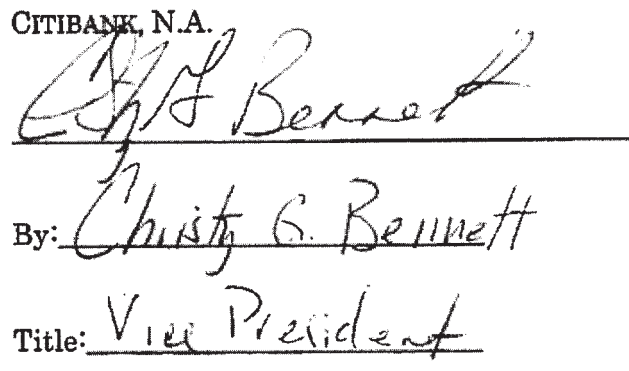 CITIBANK, N.A.
Chy G Bennett
By: Christy G. Bennett
Title: Vice President